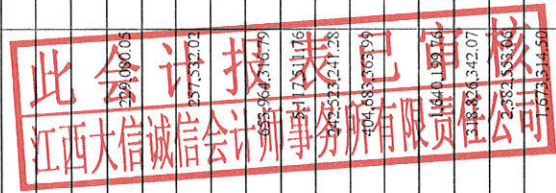 此会计报表已审核
江西大信诚信会计师事务所有限责任公司
229,080.05
257,532.02
653,964,316.79
5,117,511.76
242,523,241.28
404,683,363.99
1,640,199.76
318,826,342.07
2,382,553.06
1,673,314.50